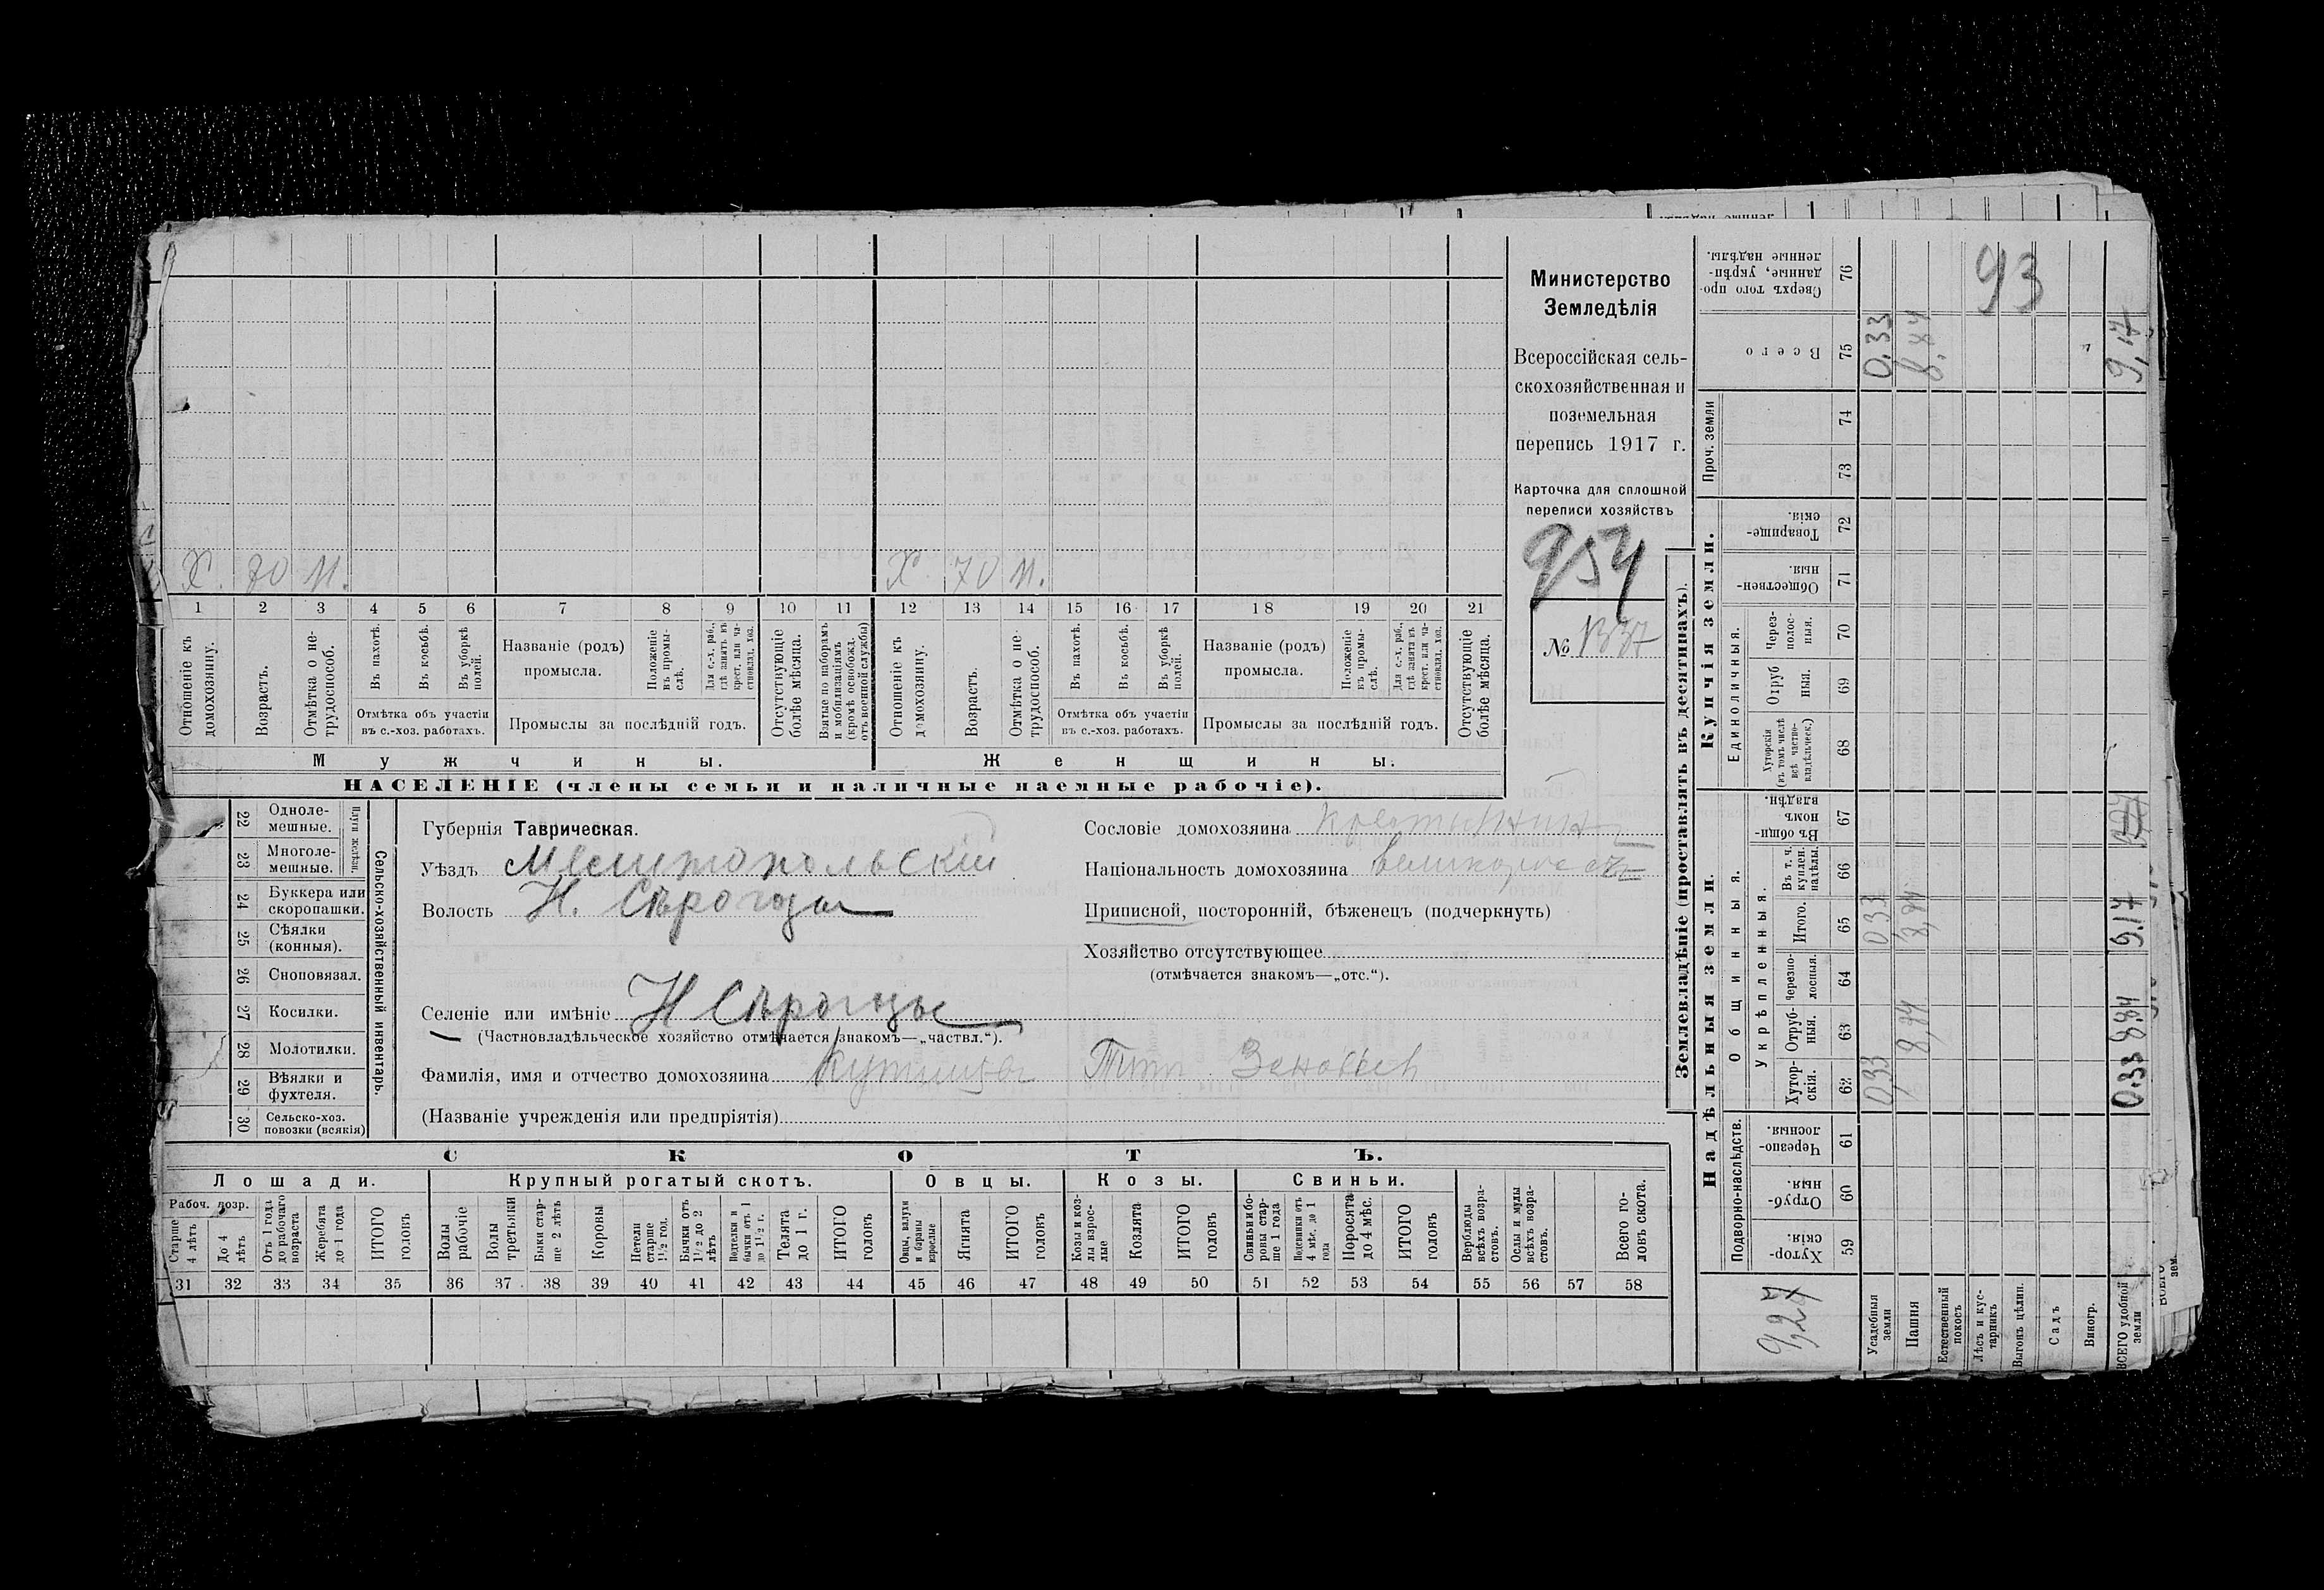 Х. 70 Н. Х. 70 Н.
1 2 3 4 5 6 7 8 9 10 11 12 13 14 15 16 17 18 19 20 21
Отношеніе къ домохозяину.
Возрастъ.
Отмѣтка о не-
трудоспособ.
Въ пахотѣ.
Въ косьбѣ.
Въ уборкѣ
полей.
Отмѣтка объ участіи
въ с.-хоз. работахъ.
Названіе (родъ)
промысла.
Положеніе
въ промы-
слѣ.
Для с.-х. раб.,
гдѣ занятъ въ
крест. или ча-
стновлад. хоз.
Промыслы за послѣдній годъ.
Отсутствующіе
болѣе мѣсяца.
Взятые по наборамъ
и мобилизаціямъ
(кромѣ освобожд.
отъ военной службы)
Отношеніе къ
домохозяину.
Возрастъ.
Отмѣтка о не-
трудоспособ.
Въ пахотѣ.
Въ косьбѣ.
Въ уборкѣ
полей.
Отмѣтка объ участіи
въ с.-хоз. работахъ.
Названіе (родъ)
промысла.
Положеніе
въ промы-
слѣ.
Для с.-х. раб.,
гдѣ занята въ
крест. или ча-
стновлад. хоз.
Промыслы за послѣдній годъ.
Отсутствующіе
болѣе мѣсяца.
Мужчины. Женщины.
НАСЕЛЕНІЕ (члены семьи и наличные наемные рабочіе).
Министерство
Земледѣлія
Всероссійская сель-
скохозяйственная и
поземельная
перепись 1917 г.
Карточка для сплошной
переписи хозяйствъ
954
№ 1337
22 Одноле-
мешные.
23 Многоле-
мешные.
Плуги желѣзн.
24 Буккера или
скоропашки.
25 Сѣялки
(конныя).
26 Сноповязал.
27 Косилки.
28 Молотилки.
29 Вѣялки и
фухтеля.
30 Сельско-хоз.
повозки (всякія)
Сельско-хозяйственный инвентарь.
Губернія Таврическая.
Уѣздъ Мелитопольскій
Волость Н. Сѣрогозы
Селеніе или имѣніе Н Сѣрогозы
(Частновладѣльческое хозяйство отмѣчается знакомъ—„частвл.“).
Фамилія, имя и отчество домохозяина Титъ
(Названіе учрежденія или предпріятія)
Сословіе домохозяина крестьянинъ
Національность домохозяина великороссъ
Приписной, посторонній, бѣженецъ (подчеркнуть)
Хозяйство отсутствующее
(отмѣчается знакомъ—„отс.“).
СКОТЪ.
Лошади. Крупный рогатый скотъ. Овцы. Козы. Свиньи.
Рабоч. возр.
Старше
4 лѣтъ
До 4
лѣтъ
Отъ 1 года
до рабочаго
возраста
Жеребята
до 1 года
ИТОГО
головъ
Волы
рабочіе
Волы
третьяки
Быки стар-
ше 2 лѣтъ
Коровы
Нетели
старше
1½ год.
Бычки отъ
1½ до 2
лѣтъ
Подтелки и
бычки отъ 1
до 1½ г.
Телята
до 1 г.
ИТОГО
головъ
Овцы, валухи
и бараны
взрослые
Ягнята
ИТОГО
головъ
Козы и коз-
лы взрос-
лые
Козлята
ИТОГО
головъ
Свиньи и бо-
ровы стар-
ше 1 года
Подсвинки отъ
4 мѣс. до 1
года
Поросята
до 4 мѣс.
ИТОГО
головъ
Верблюды
всѣхъ возра-
стовъ.
Ослы и мулы
всѣхъ возра-
стовъ.
Всего го-
ловъ скота.
31 32 33 34 35 36 37 38 39 40 41 42 43 44 45 46 47 48 49 50 51 52 53 54 55 56 57 58
Землевладѣніе (проставлять въ десятинахъ).
Надѣльныя земли.
Купчія земли.
Подворно-наслѣдств.
Общинныя.
Укрѣпленныя.
Единоличныя.
Проч. земли
Хутор-
скія. 59
Отруб-
ныя. 60
Черезпо-
лосныя. 61
Хутор-
скія. 62
Отруб-
ныя. 63
Черезпо-
лосныя. 64
Итого. 65
Въ т. ч.
куплен.
надѣлы. 66
Въ общин-
номъ
владѣн. 67
Хуторскія
(въ томъ числѣ
всѣ частно-
владѣльческ.) 68
Отруб
ныя. 69
Через-
полос-
ныя. 70
Обществен-
ныя. 71
Товарище-
скія. 72
73
74
Всего 75
Сверхъ того про-
данные, укрѣп-
ленные надѣлы. 76
93
9,27
Усадебныя
земли 0,33 0,33 0.33
Пашня 8,84 8,84 8,84
Естественный
покосъ
Лѣсъ и кус-
тарникъ
Выгонъ цѣлин.
Садъ
Виногр.
ВСЕГО удобной
земли 0.33 8.84 9.17 9,17